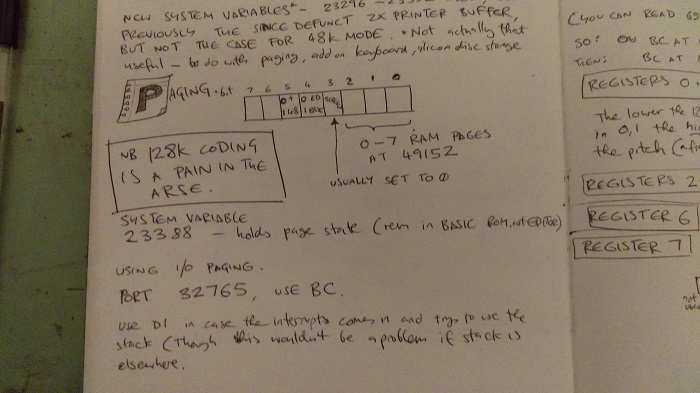 NEW SYSTEM VARIABLES* - 23296 -
PREVIOUSLY THE SINCE DEFUNCT ZX PRINTER BUFFER,
BUT NOT THE CASE FOR 48K MODE. *Not actually that
useful - to do with paging, add on keyboard, silicon disc storage
PAGING.bit 7 6 5 4 3 2 1 0
48
0-7 RAM PAGES
AT 49152
USUALLY SET TO 0
NB 128K CODING
IS A PAIN IN THE
ARSE.
SYSTEM VARIABLE
23388 - holds page state (rem in BASIC ROM, not EDITOR)
USING I/O PAGING.
PORT 32765, USE BC.
Use DI in case the interrupts comes in and trys to use the
stack (Though this wouldn't be a problem if stack is
elsewhere.
(YOU CAN READ
SO: BC AT
THEN: BC AT
REGISTERS 0
The lower the
in 0,1 the
the pitch
REGISTERS 2
REGISTER 6
REGISTER 7
not